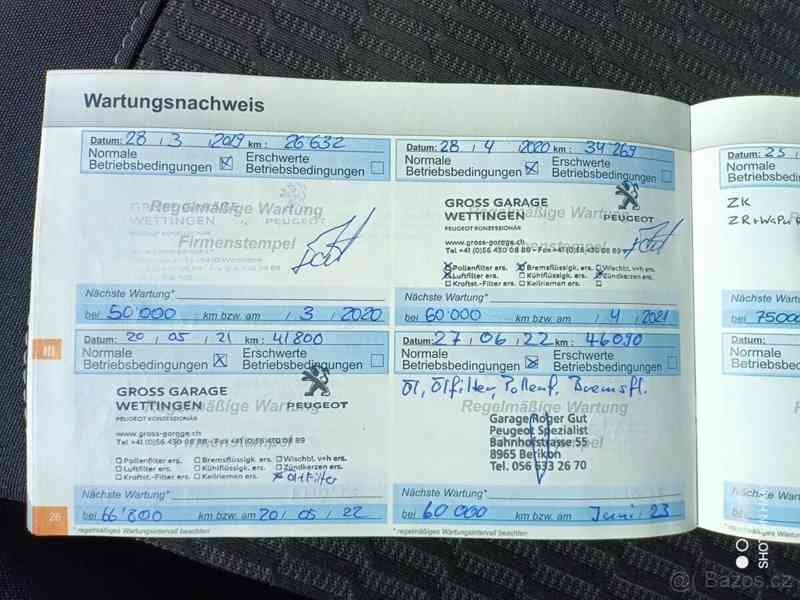 Wartungsnachweis
Datum: 28 / 3 / 2019 km: 26632
Normale Betriebsbedingungen ☒ Erschwerte Betriebsbedingungen ☐
GROSS GARAGE
Regelmäßige Wartung
WETTINGEN PEUGEOT
PEUGEOT KONZESSIONÄR
Firmenstempel
Nächste Wartung*
bei 50'000 km bzw. am / 3 / 2020
Datum: 28 / 4 / 2020 km: 34 269
Normale Betriebsbedingungen ☒ Erschwerte Betriebsbedingungen ☐
GROSS GARAGE
WETTINGEN
Regelmäßige Wartung
PEUGEOT
PEUGEOT KONZESSIONÄR
www.gross-garage.ch
Firmenstempel
Tel +41 (0)56 430 08 88 - Fax +41 (0)56 430 08 89
☒ Pollenfilter ers. ☒ Bremsflüssigk. ers. ☐ Wischbl. v+h ers.
☒ Luftfilter ers. ☐ Kühlflüssigk. ers. ☒ Zündkerzen ers.
☐ Kraftst.-Filter ers. ☐ Keilriemen ers. ☐
Nächste Wartung*
bei 60'000 km bzw. am / 4 / 2021
Datum: 20 / 05 / 21 km: 41'800
Normale Betriebsbedingungen ☒ Erschwerte Betriebsbedingungen ☐
GROSS GARAGE
WETTINGEN
Regelmäßige Wartung
PEUGEOT
PEUGEOT KONZESSIONÄR
www.gross-garage.ch
Tel +41 (0)56 430 08 88 - Fax +41 (0)56 430 08 89
Firmenstempel
☐ Pollenfilter ers. ☐ Bremsflüssigk. ers. ☐ Wischbl. v+h ers.
☐ Luftfilter ers. ☐ Kühlflüssigk. ers. ☐ Zündkerzen ers.
☐ Kraftst.-Filter ers. ☐ Keilriemen ers. ☒ Ölfilter
Nächste Wartung*
bei 66'800 km bzw. am 20 / 05 / 22
Datum: 27 / 06 / 22 km: 46090
Normale Betriebsbedingungen ☒ Erschwerte Betriebsbedingungen ☐
Öl, Ölfilter, Pollenf., Bremsfl.
Regelmäßige Wartung
Garage Roger Gut
Peugeot Spezialist
Bahnhofstrasse 55
8965 Berikon
Tel. 056 633 26 70
Nächste Wartung*
bei 60 000 km bzw. am Juni / 23
26
* regelmäßiges Wartungsintervall beachten
* regelmäßiges Wartungsintervall beachten
Datum: 25
Normale
Betriebsbedingun
ZK
Nächste Wartu
bei 75000
Datum:
Normale
Betriebsbedingun
Nächste Wartu
bei
SHOT
@ Bazos.cz